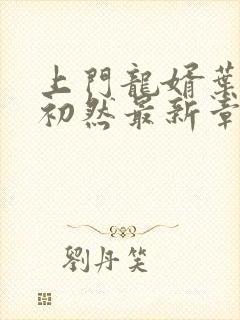 上門龍婿葉
初然最新章
劉丹笑